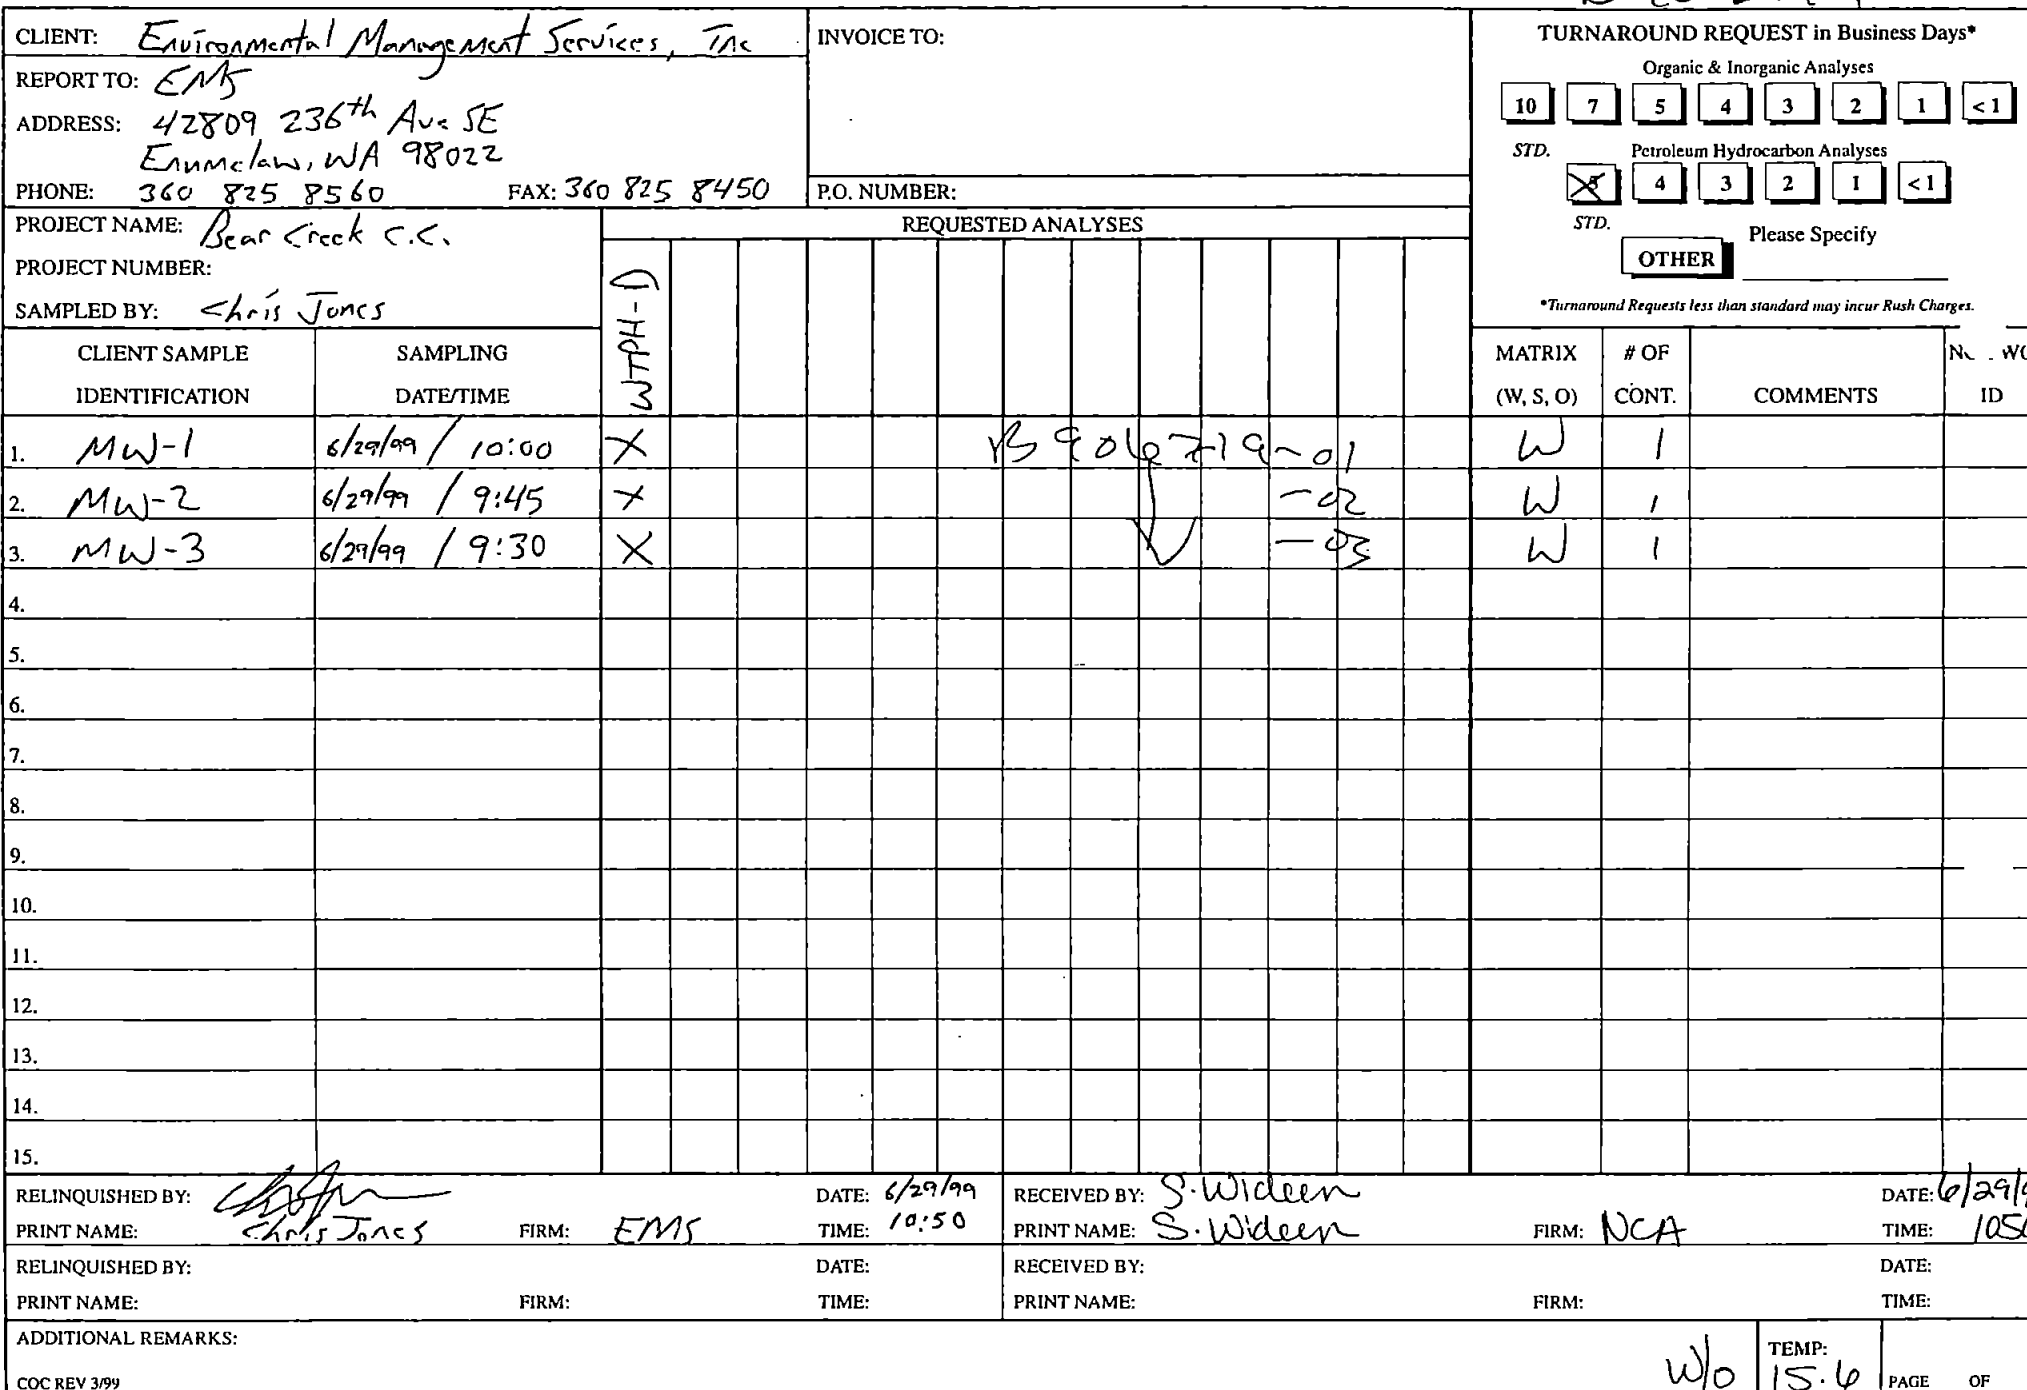 CLIENT: Environmental Management Services, Inc
REPORT TO: EMS
ADDRESS: 42809 236th Ave SE
Enumclaw, WA 98022
PHONE: 360 825 8560 FAX: 360 825 8450
INVOICE TO:
P.O. NUMBER:
TURNAROUND REQUEST in Business Days*
Organic & Inorganic Analyses
10 7 5 4 3 2 1 <1
STD.
Petroleum Hydrocarbon Analyses
5 4 3 2 1 <1
STD.
Please Specify
OTHER
*Turnaround Requests less than standard may incur Rush Charges.
PROJECT NAME: Bear Creek C.C.
PROJECT NUMBER:
SAMPLED BY: Chris Jones
REQUESTED ANALYSES
WTPH-D
CLIENT SAMPLE IDENTIFICATION
SAMPLING DATE/TIME
MATRIX (W, S, O)
# OF CONT.
COMMENTS
ID
1. MW-1 6/29/99 / 10:00 X B906719-01 W 1
2. MW-2 6/29/99 / 9:45 X -02 W 1
3. MW-3 6/29/99 / 9:30 X -03 W 1
4.
5.
6.
7.
8.
9.
10.
11.
12.
13.
14.
15.
RELINQUISHED BY: DATE: 6/29/99 RECEIVED BY: S. Wideen DATE: 6/29/9
PRINT NAME: Chris Jones FIRM: EMS TIME: 10:50 PRINT NAME: S. Wideen FIRM: NCA TIME: 1050
RELINQUISHED BY: DATE: RECEIVED BY: DATE:
PRINT NAME: FIRM: TIME: PRINT NAME: FIRM: TIME:
ADDITIONAL REMARKS:
COC REV 3/99
W/o
TEMP:
15.6
PAGE OF